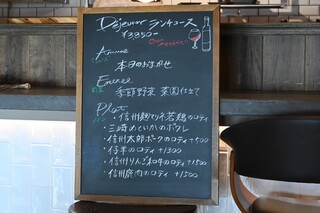 Déjeuner ランチコース
¥3,850-
Amuse
本日のおまかせ
Entrée
前菜 季節野菜 菜園仕立て
Plat
メイン ・信州麹マリネ若鶏のロティ
・三崎めでいかのポワレ
・信州太郎ポークのロティ +500
・仔羊のロティ +1300
・信州りんご和牛のロティ +1500
・信州鹿肉のロティ +1500